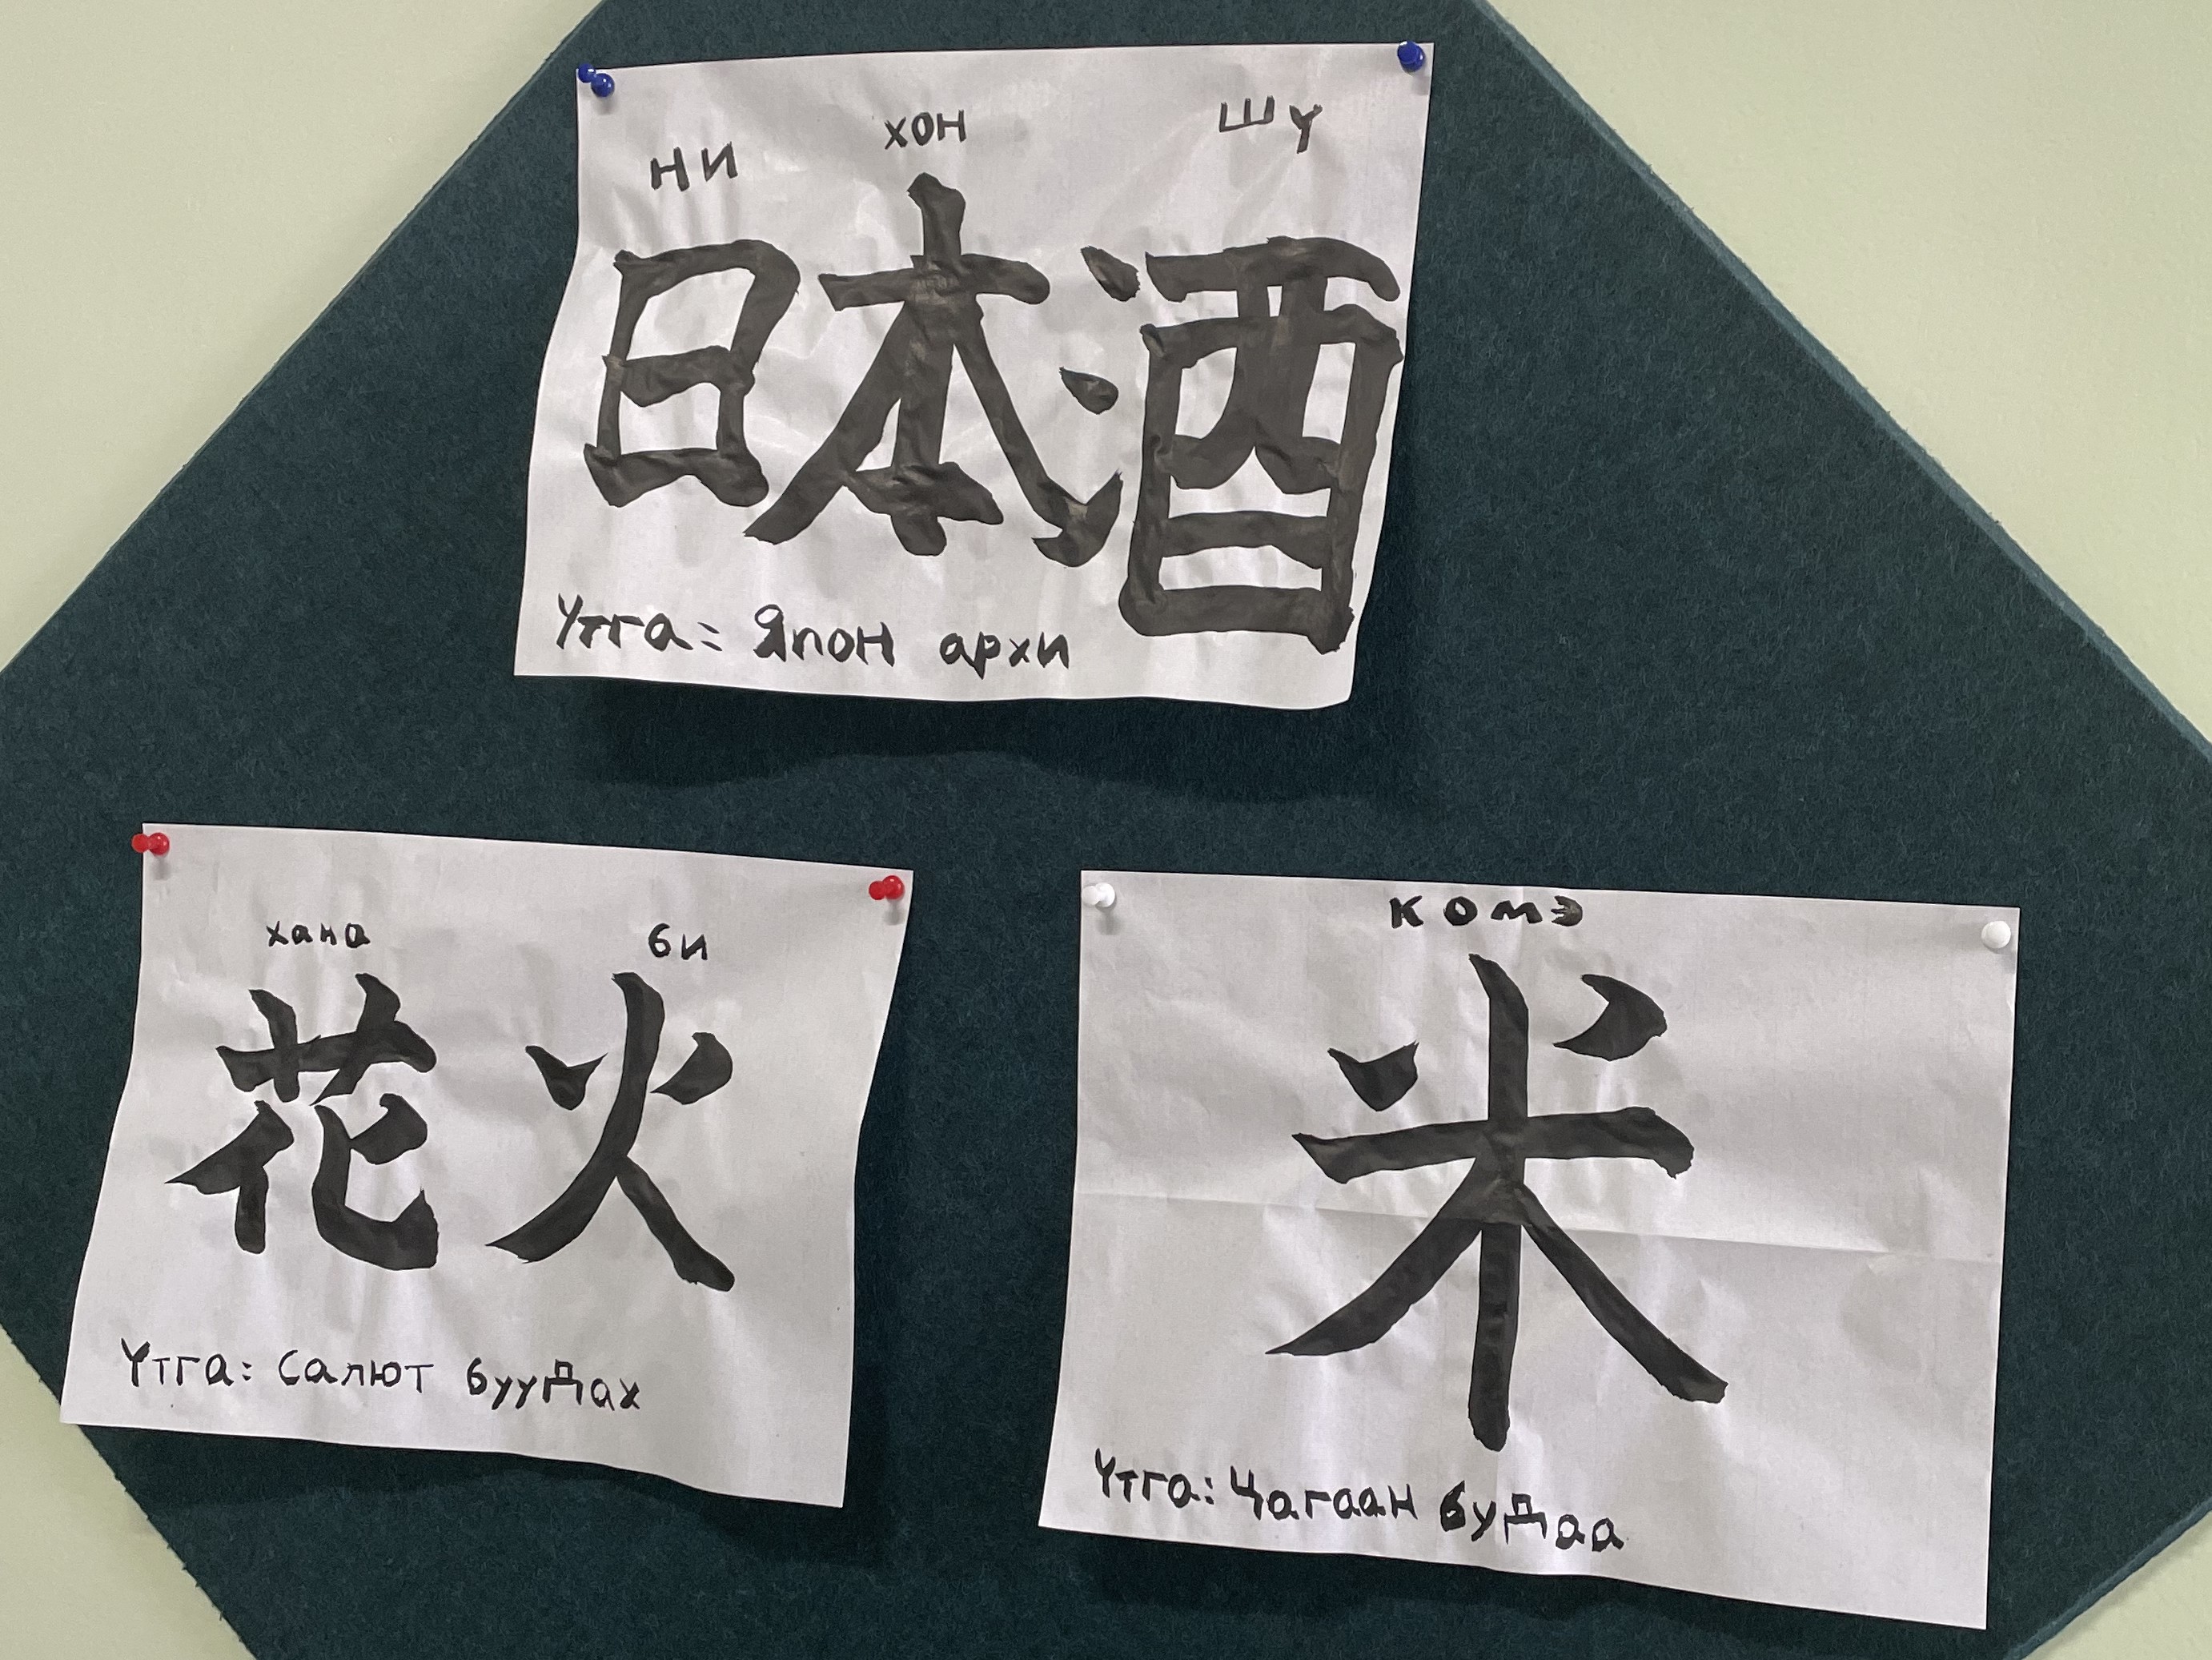 ни хон шү
日本酒
Утга: Япон архи
хана би
花火
Утга: Салют буудах
комэ
米
Утга: Цагаан будаа